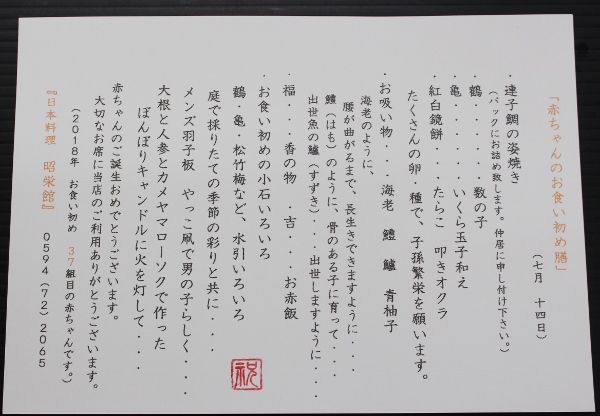 「赤ちゃんのお食い初め膳」
(七月 十四日)
・連子鯛の姿焼き
(パックにお詰め致します。仲居に申し付け下さい。)
・鶴・・・・・・数の子
・亀・・・・・・いくら玉子和え
・紅白鏡餅・・・・たらこ 叩きオクラ
たくさんの卵・種で、子孫繁栄を願います。
・お吸い物・・・海老 鱧 鱸 青柚子
海老のように、
腰が曲がるまで、長生きできますように・・・
鱧(はも)のように、骨のある子に育って・・・
出世魚の鱸(すずき)・・・出世しますように・・・
・福・・香の物 吉・・・お赤飯
・お食い初めの小石いろいろ
鶴・亀・松竹梅など、水引いろいろ
庭で採りたての季節の彩りと共に・・・
メンズ羽子板 やっこ凧で男の子らしく・・・
大根と人参とカメヤマローソクで作った
ぼんぼりキャンドルに火を灯して・・・
赤ちゃんのご誕生おめでとうございます。
大切なお席に当店のご利用ありがとうございます。
(2018年 お食い初め 37組目の赤ちゃんです。)
『日本料理 昭栄館』 0594(72)2065
祝